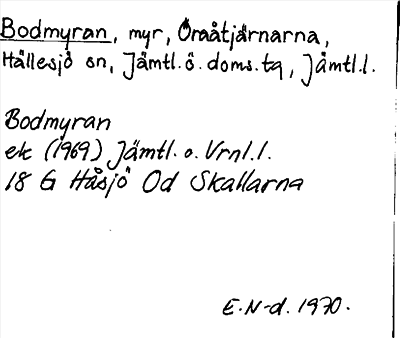 Bodmyran, myr, Öraåtjärnarna,
Hällesjö sn, Jämtl.ö.doms.tg, Jämtl.l.
Bodmyran
ek (1969) Jämtl.o.Vrnl.l.
18 G Håsjö Od Skallarna
E.N-d. 1970.